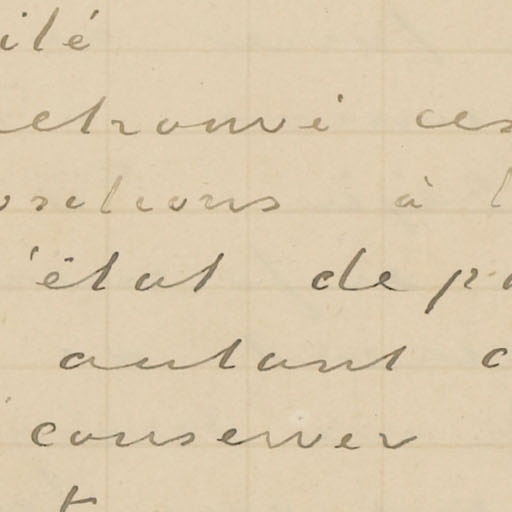 ilé
etrouvé ces
ositions à l
'état de pa
autant c
conserver
t